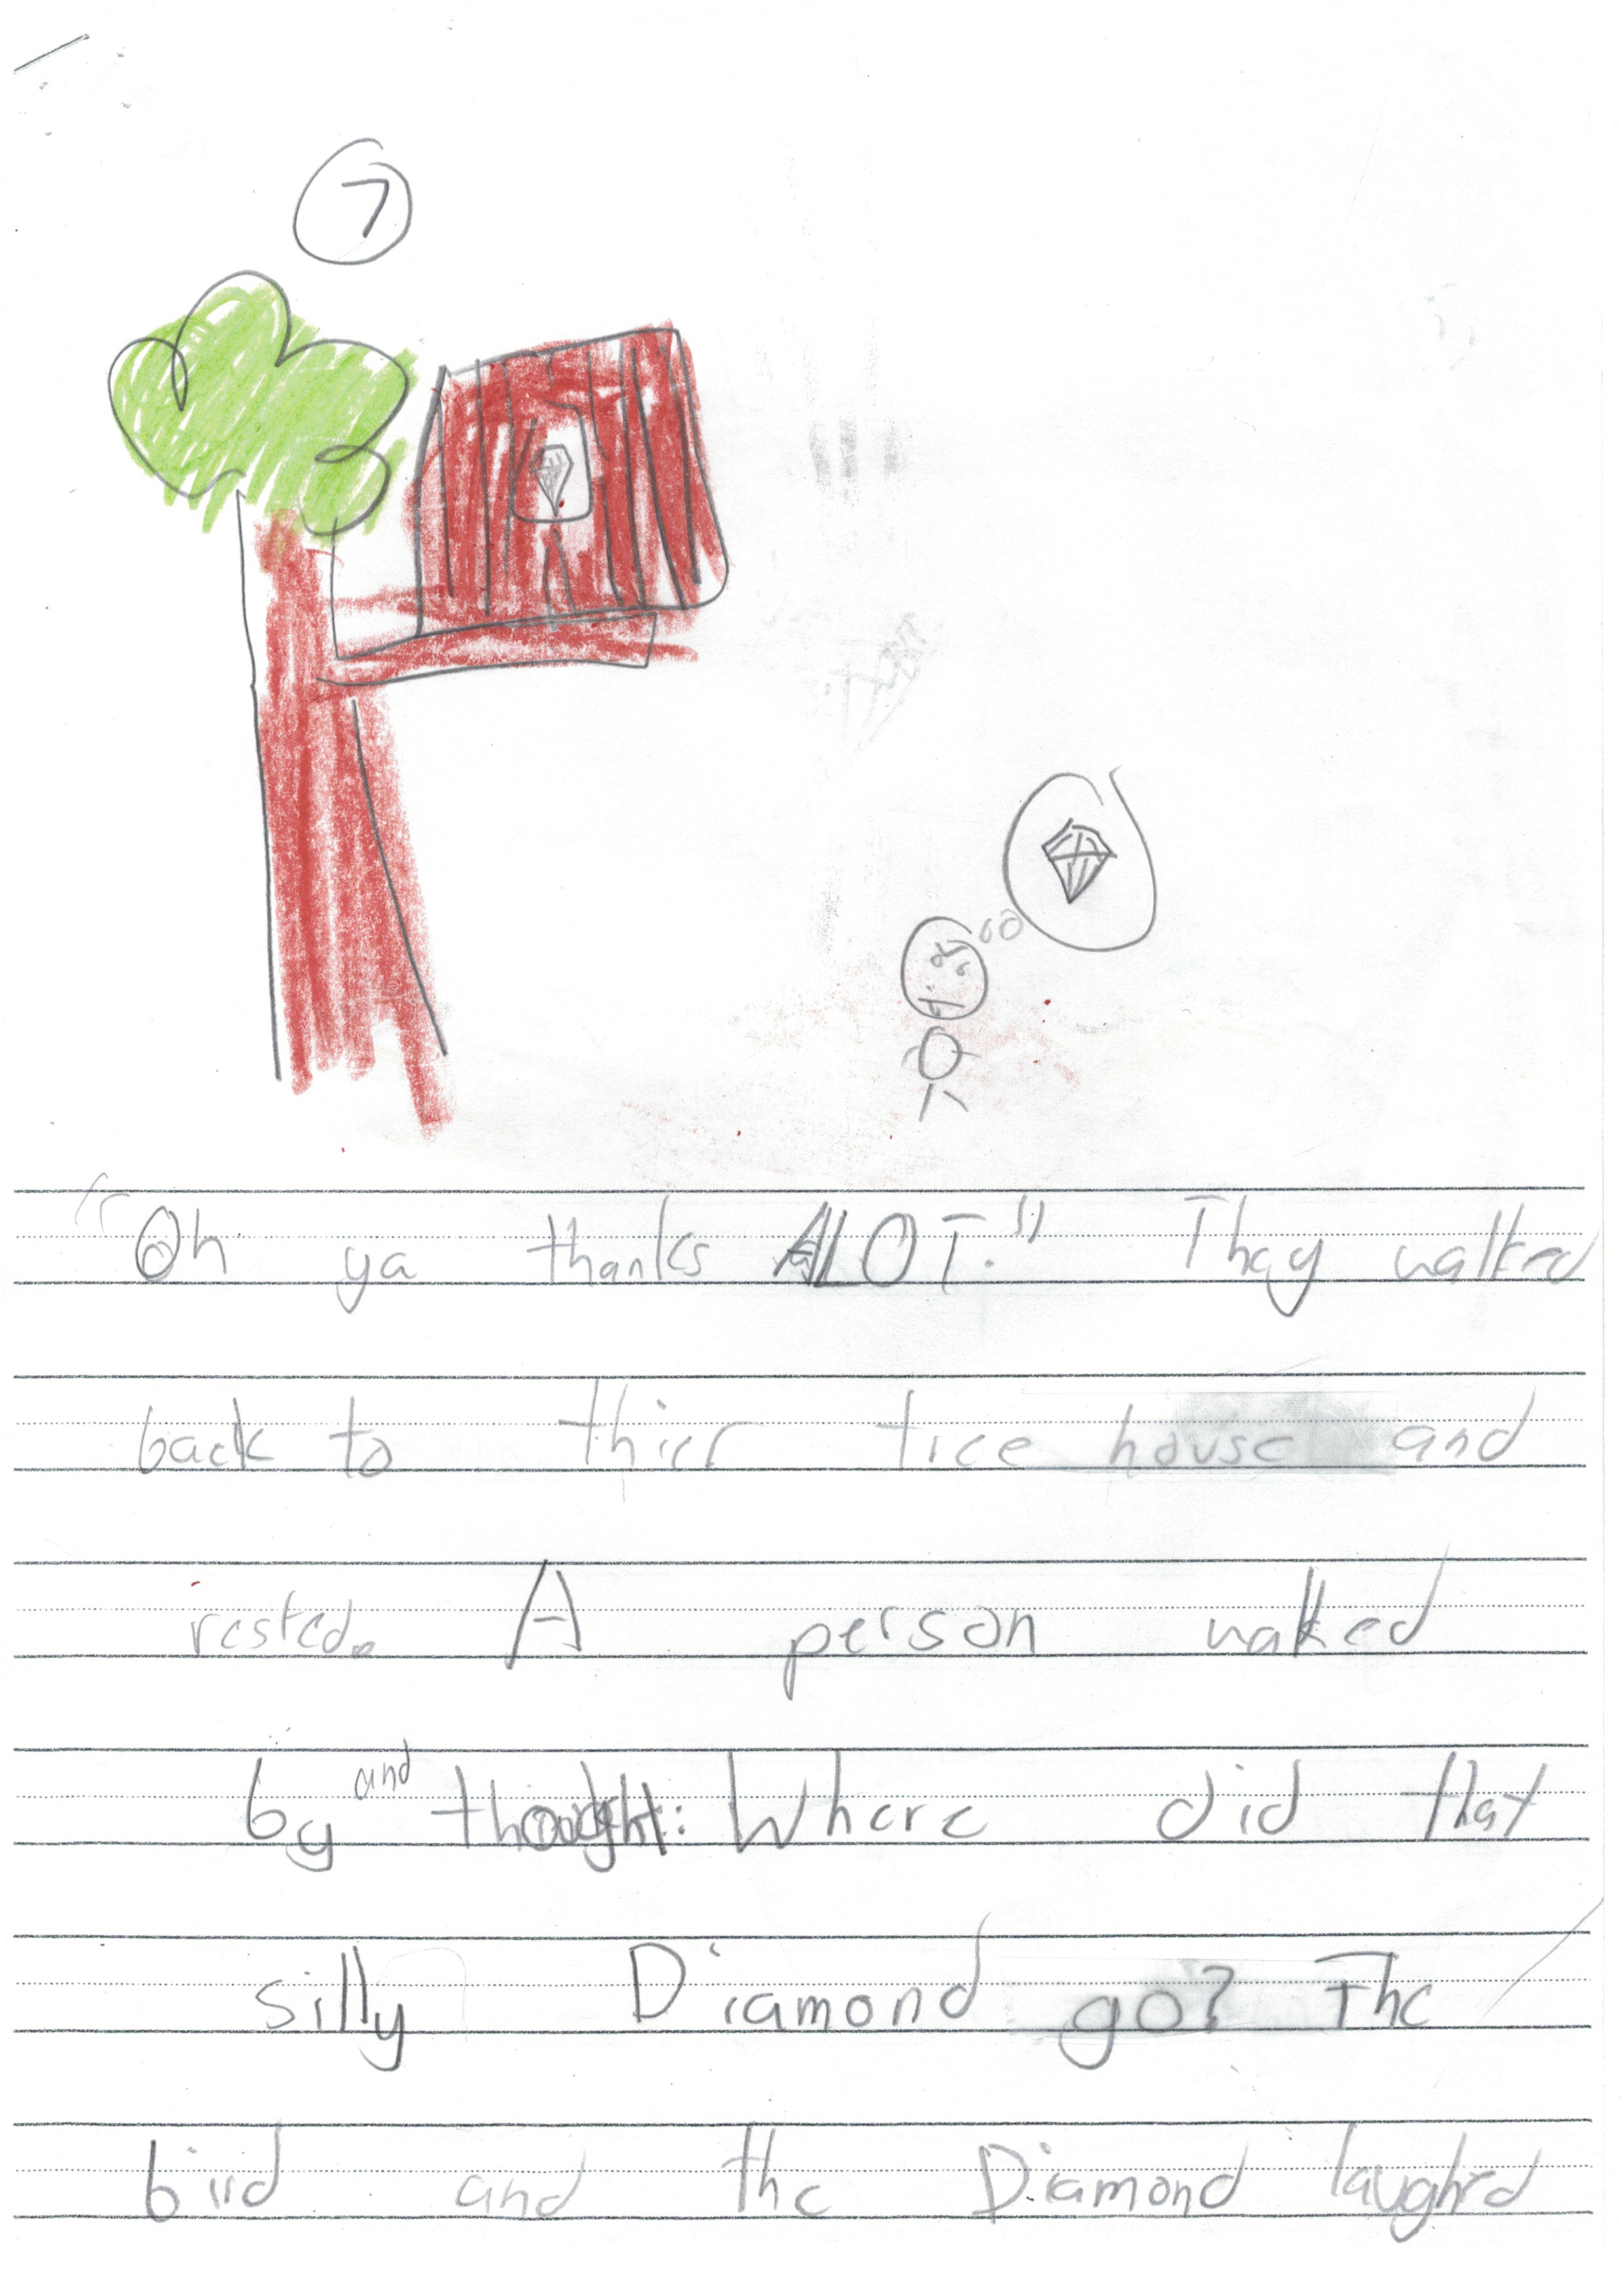 7
"Oh ya thanks ALOT." They walked
back to thier tree house and
rested. A person walked
by and thought: Where did that
silly Diamond go? The
bird and the Diamond laughed